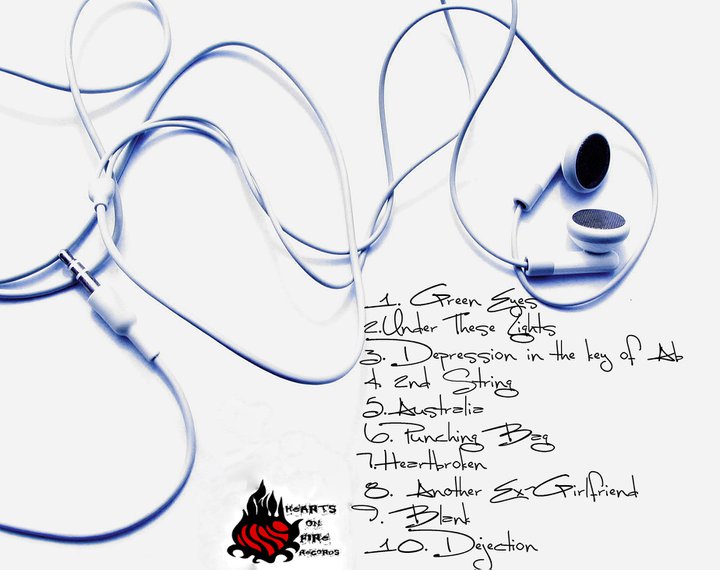 1. Green Eyes
2.Under These Lights
3. Depression in the key of Ab
4. 2nd String
5. Australia
6. Punching Bag
7.Heartbroken
8. Another Ex-Girlfriend
9. Blank
10. Dejection
HEARTS
ON
FIRE
RECORDS